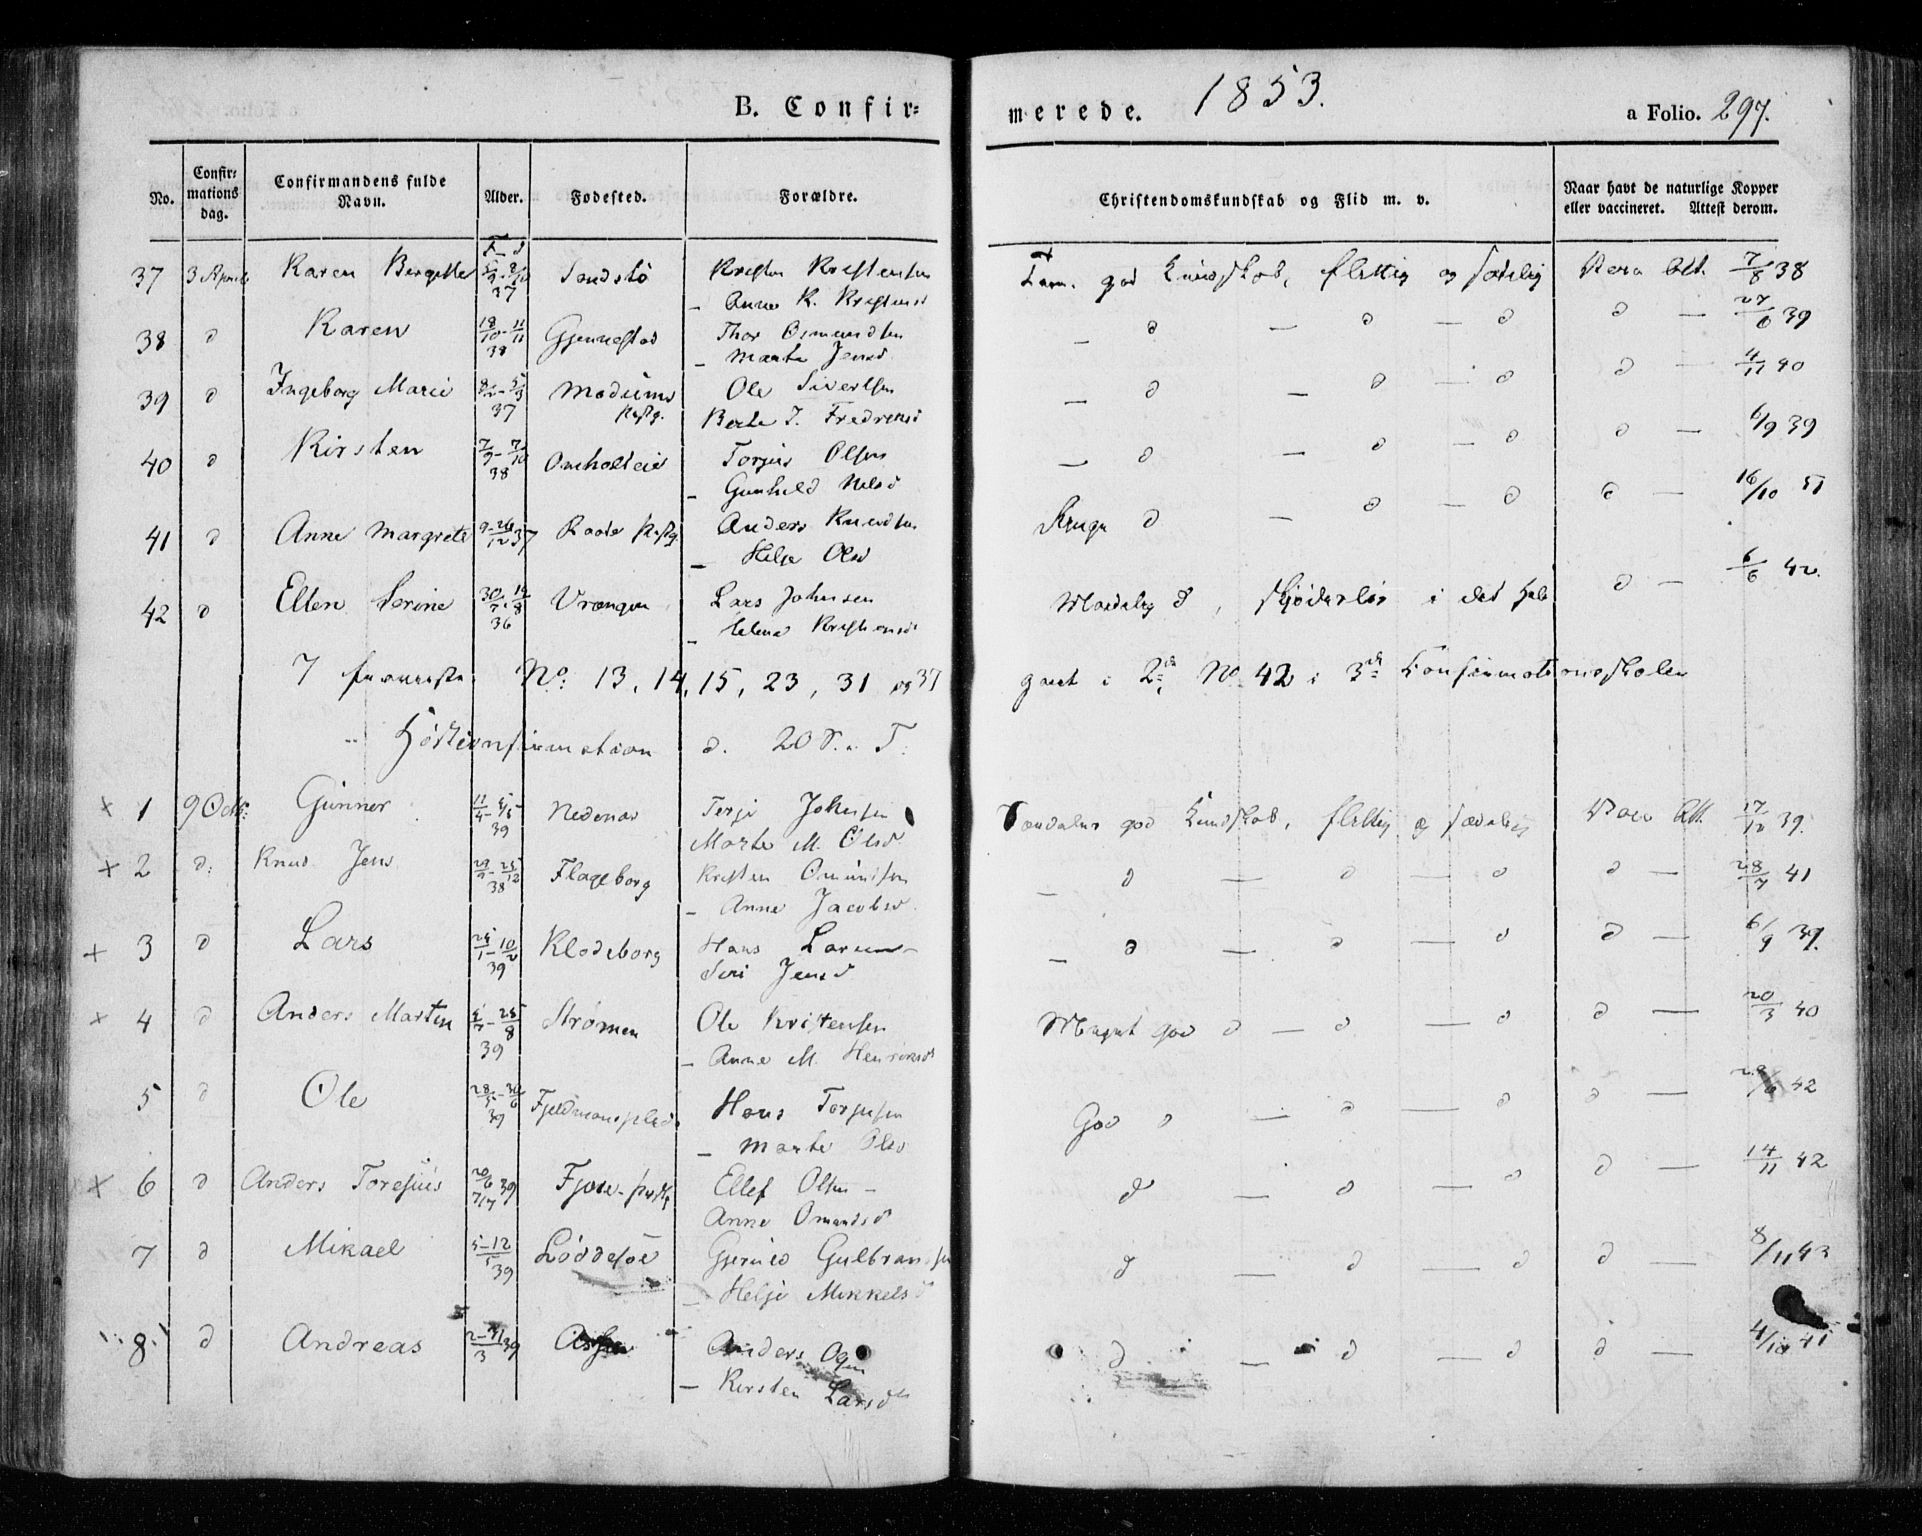 B. Confir=
merede. 1853. a Folio. 297.
No. Confir= mations dag. Confirmandens fulde Navn. Alder. Fødested. Forældre. Christendomskundskab og Flid m. v. Naar havt de naturlige Kopper eller vaccineret. Attest derom.
37 3 April Karen Birgitte 37 Sandstö Kristen Kristensen god Kundskab, flittig og sædelig Att. 7/8 38
Anne K. Kristensd
38 d Karen 18/10 - 11/11 38 Gjennestad Thor Osmundsen — d — d — d d — 39
— Marte Jensd
39 d Ingeborg Marie 37 Modums Pastg. Ole Sivertsen — d — d — d d — 4/11 40
Berte I. Fredriksd
40 d Kirsten 7/9 - 7/10 38 Omholteie Torjus Olsen — d — d — d d — 6/9 39
— Gunhild Nilsd
41 d Anne Margrete 37 Anders Knudsen d — d — d d — 16/10 51
— Helje Olsd
42 d Ellen Serine 30/7 - 19/8 36 Vrangen Lars Johnsen d, skjödeslös i det Hele d — 6/6 42.
— Helene Kristensd
7 No: 13, 14, 15, 23, 31 og 37 gaaet i 2de No 42 i 3de Confirmationsskolen
Höstconfirmation d. 20 S. a T.
× 1 9 Octbr: Gunner 39 Nedenæs Terje Johnsen god Kundskab, flittig og sædelig Att. 17/12 39.
Marte M. Olsd
× 2 d: Knud Jens 38 Flageborg Kristen Omundsen — d — d — d d — 28/7 41
— Anne Jacobsd.
× 3 d Lars 39 Klodeborg Hans Larsen — d — d — d d — 6/9 39.
Siri Jensd
× 4 d Anders Martin 39 Strømen Ole Kristensen Meget god d — d — d d — 20/3 40
— Anne M. Henriksd
5 d Ole 28/5 - 30/6 39 Fjeldmandsplads Hans Torjusen God d — d — d d — 42
— Marte Olsd
× 6 d Anders Torejus 39 Ellef Olsen d — d — d d — 14/11 42
Anne Omundsd
7 d Mikael 5-12/5 39 Löddesöe Gjerud Gulbransen d — d — d d — 8/11 43
— Helje Mikkelsd
8 d Andreas 39 Anders d — d — d d — 4/10 41
— Kirsten Larsd